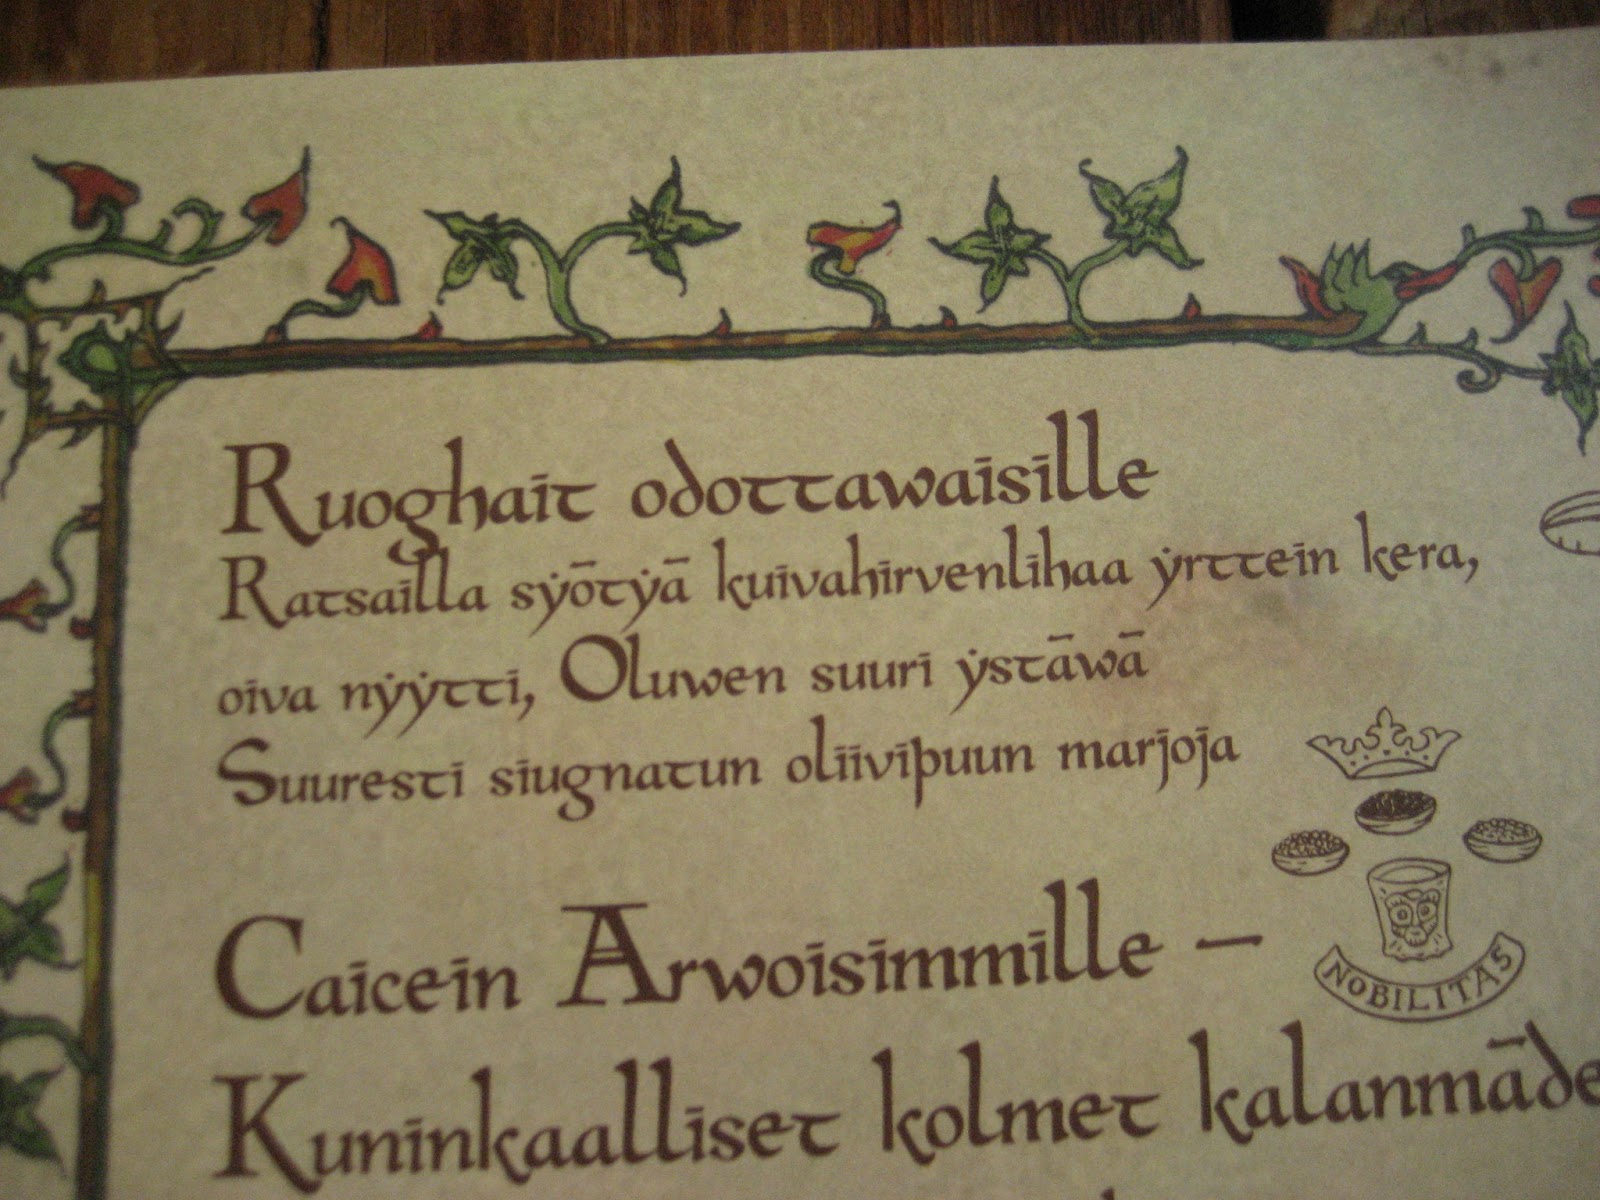 Ruoghait odottawaisille
Ratsailla sẏōtẏā kuivahirvenlihaa ẏrttein kera,
oiva nẏẏtti, Oluwen suuri ẏstāwā
Suuresti siugnatun oliivipuun marjoja
Caicein Arwoisimmille –
NOBILITAS
Kuninkaalliset kolmet kalanmāde